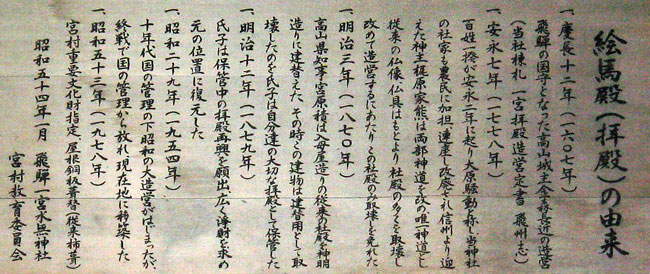 絵馬殿(拝殿)の由来
一、慶長十二年(一六〇七年)
飛騨の国守となった高山城主金森長近の造営
(当社棟札 一宮拝殿造営定書 飛州志)
一、安永七年(一七七八年)
百姓一揆が安永二年に起り大原騒動と称し当神社
の社家も農民に加担 連座し改廃され信州より迎
えた神主梶原家熊は両部神道を改め唯一神道とし
従来の仏像 仏具はもとより 社殿の多くを取壊し
改めて造営するにあたり この社殿のみ取壊しを免れた
一、明治三年(一八七〇年)
高山県知事宮原積は入母屋造りの従来の社殿を神明
造りに建替えた、その時この建物は建替用として取
壊したのを氏子は自分達の大切な拝殿として保管した
一、明治十二年(一八七九年)
氏子は保管中の拝殿再興を願出、広く浄財を求め
元の位置に復元した
一、昭和二十九年(一九五四年)
十年代国の管理の下昭和の大造営がはじまったが、
終戦で国の管理から放れ現在地に移築した
一、昭和五十三年(一九七八年)
宮村重要文化財指定、屋根銅板葺替(従来柿葺)
昭和五十四年一月 飛騨一宮水無神社
宮村教育委員会